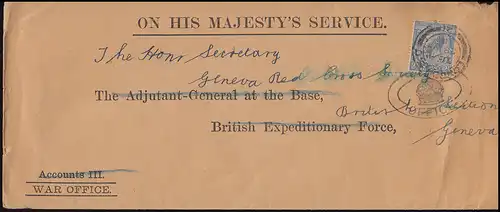 ON HIS MAJESTY'S SERVICE.
The Honr Secretary
Geneva Red Cross Society
The Adjutant-General at the Base,
British Expeditionary Force,
Geneva
Accounts III.
WAR OFFICE.